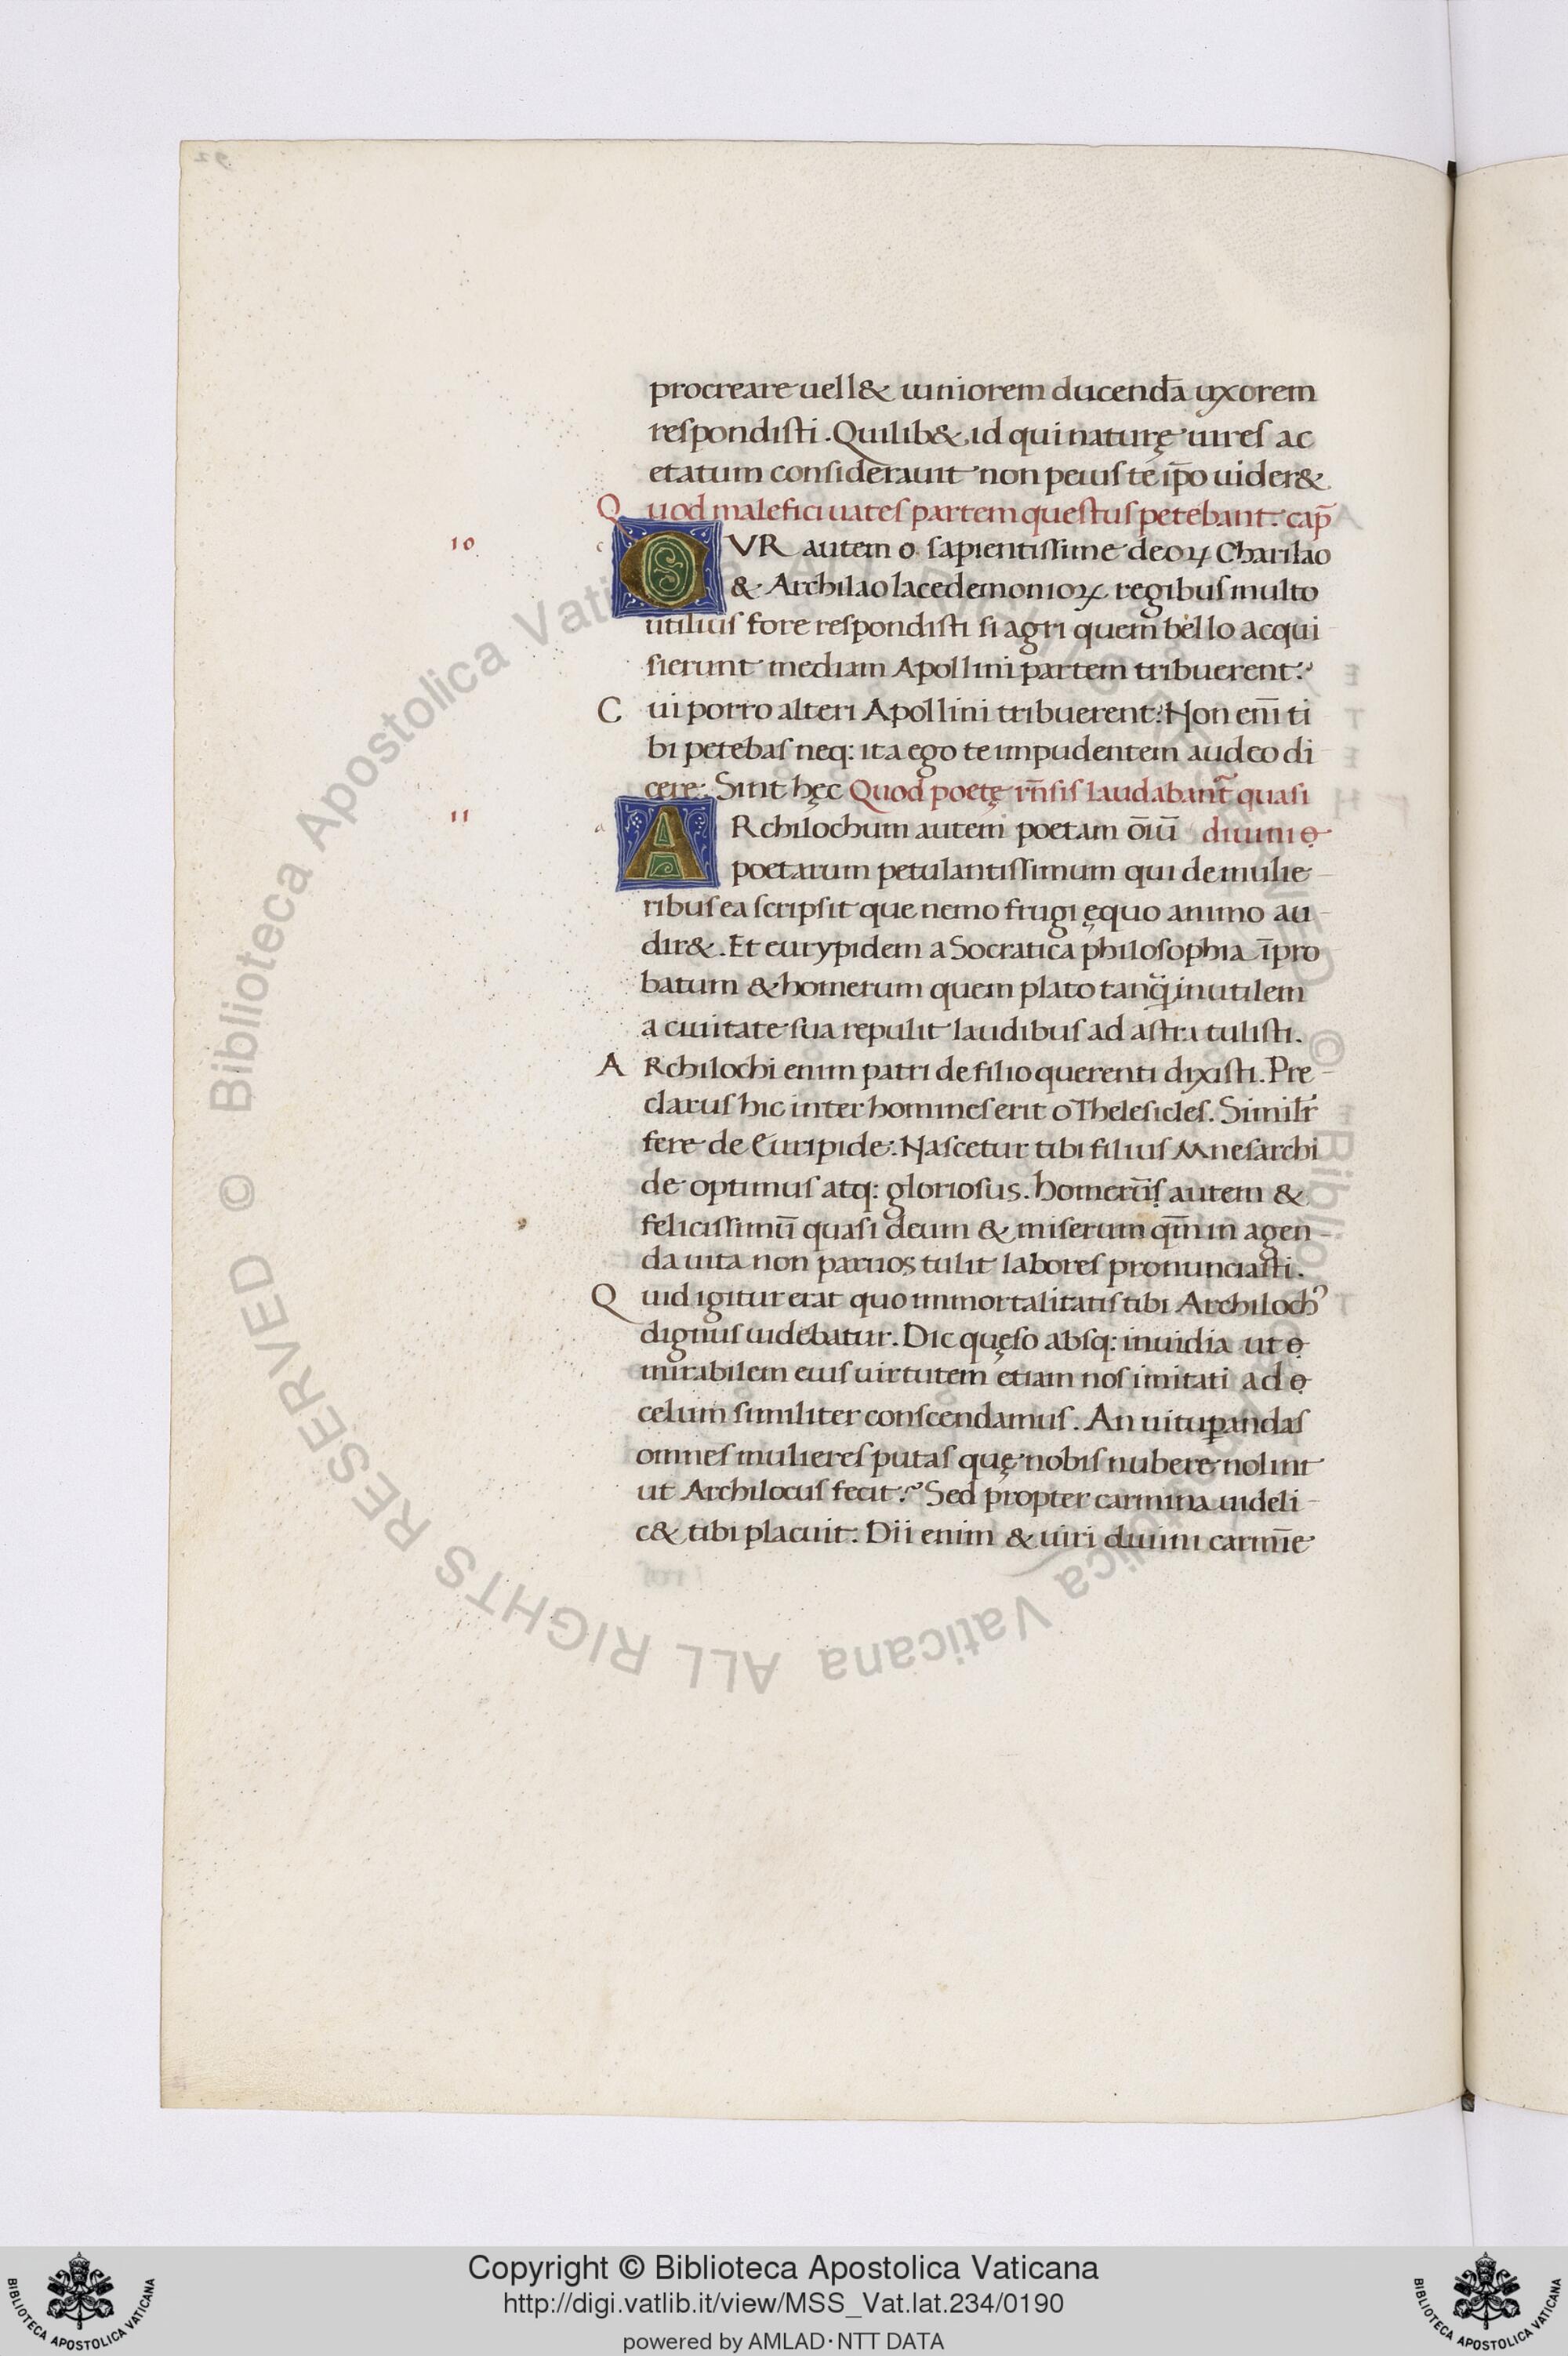 procreare uell& iuniorem ducendā uxorem
respondisti. Quilib& id qui naturę uires ac
etatum considerauit non peius te ip̄o uider&
Quod malefici uates partem questus petebant. cap̄
10
CVR autem o sapientissime deoꝝ Charilao
& Archilao lacedemonioꝝ regibus multo
utilius fore respondisti si agri quem bello acqui
sierunt mediam Apollini partem tribuerent?
Cui porro alteri Apollini tribuerent? Non eni̅ ti
bi petebas neq: ita ego te impudentem audeo di
cere. Sint hęc Quod poetę rn̄sis laudabant̄ quasi
11
ARchilochum autem poetam o̅iu̅ diuini ọ
poetarum petulantissimum qui de mulie-
ribus ea scripsit que nemo frugi ęquo animo au-
dir&. Et eurypidem a Socratica philosophia i̅pro
batum & homerum quem plato tanq̃ inutilem
a ciuitate sua repulit laudibus ad astra tulisti.
ARchilochi enim patri de filio querenti dixisti. Pre-
clarus hic inter homines erit o Thelesicles. Similr̄
fere de Euripide. Nascetur tibi filius Mnesarchi
de optimus atq: gloriosus. homeru̅ṣ autem &
felicissimu̅ quasi deum & miserum qm̅ in agen-
da uita non paruos tulit labores pronunciasti.
Quid igitur erat quo immortalitatis tibi Archiloch᾽
dignus uidebatur. Dic quęso absq: inuidia ut ọ
mirabilem eius uirtutem etiam nos imitati ad ọ
celum similiter conscendamus. An uituꝑandas
omnes mulieres putas quę nobis nubere nolint
ut Archilocus fecit? Sed propter carmina uideli-
c& tibi placuit. Dii enim & uiri diuini carmi̅e
Copyright © Biblioteca Apostolica Vaticana
http://digi.vatlib.it/view/MSS_Vat.lat.234/0190
powered by AMLAD·NTT DATA
BIBLIOTECA APOSTOLICA VATICANA
BIBLIOTECA APOSTOLICA VATICANA
© Biblioteca Apostolica Vaticana ALL RIGHTS RESERVED